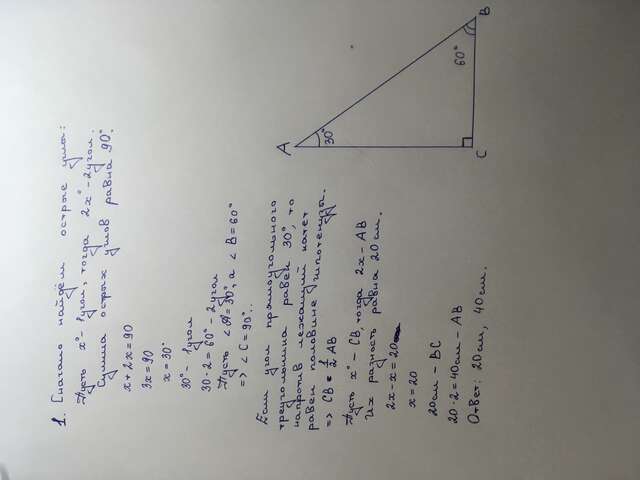 1. Сначала найдём острые углы:
Пусть x° - 1 угол, тогда 2x° - 2 угол.
Сумма острых углов равна 90°.
x + 2x = 90
3x = 90
x = 30°
30° - 1 угол
30·2 = 60° - 2 угол
Пусть <A = 30°, а <B = 60°
=> <C = 90°.
Если угол прямоугольного
треугольника равен 30°, то
напротив лежащий катет
равен половине гипотенузы.
=> CB = 1/2 AB
Пусть x° - CB, тогда 2x - AB
Их разность равна 20 см.
2x - x = 20
x = 20
20 см - BC
20·2 = 40 см - AB
Ответ: 20 см, 40 см.
A
30°
B
60°
C